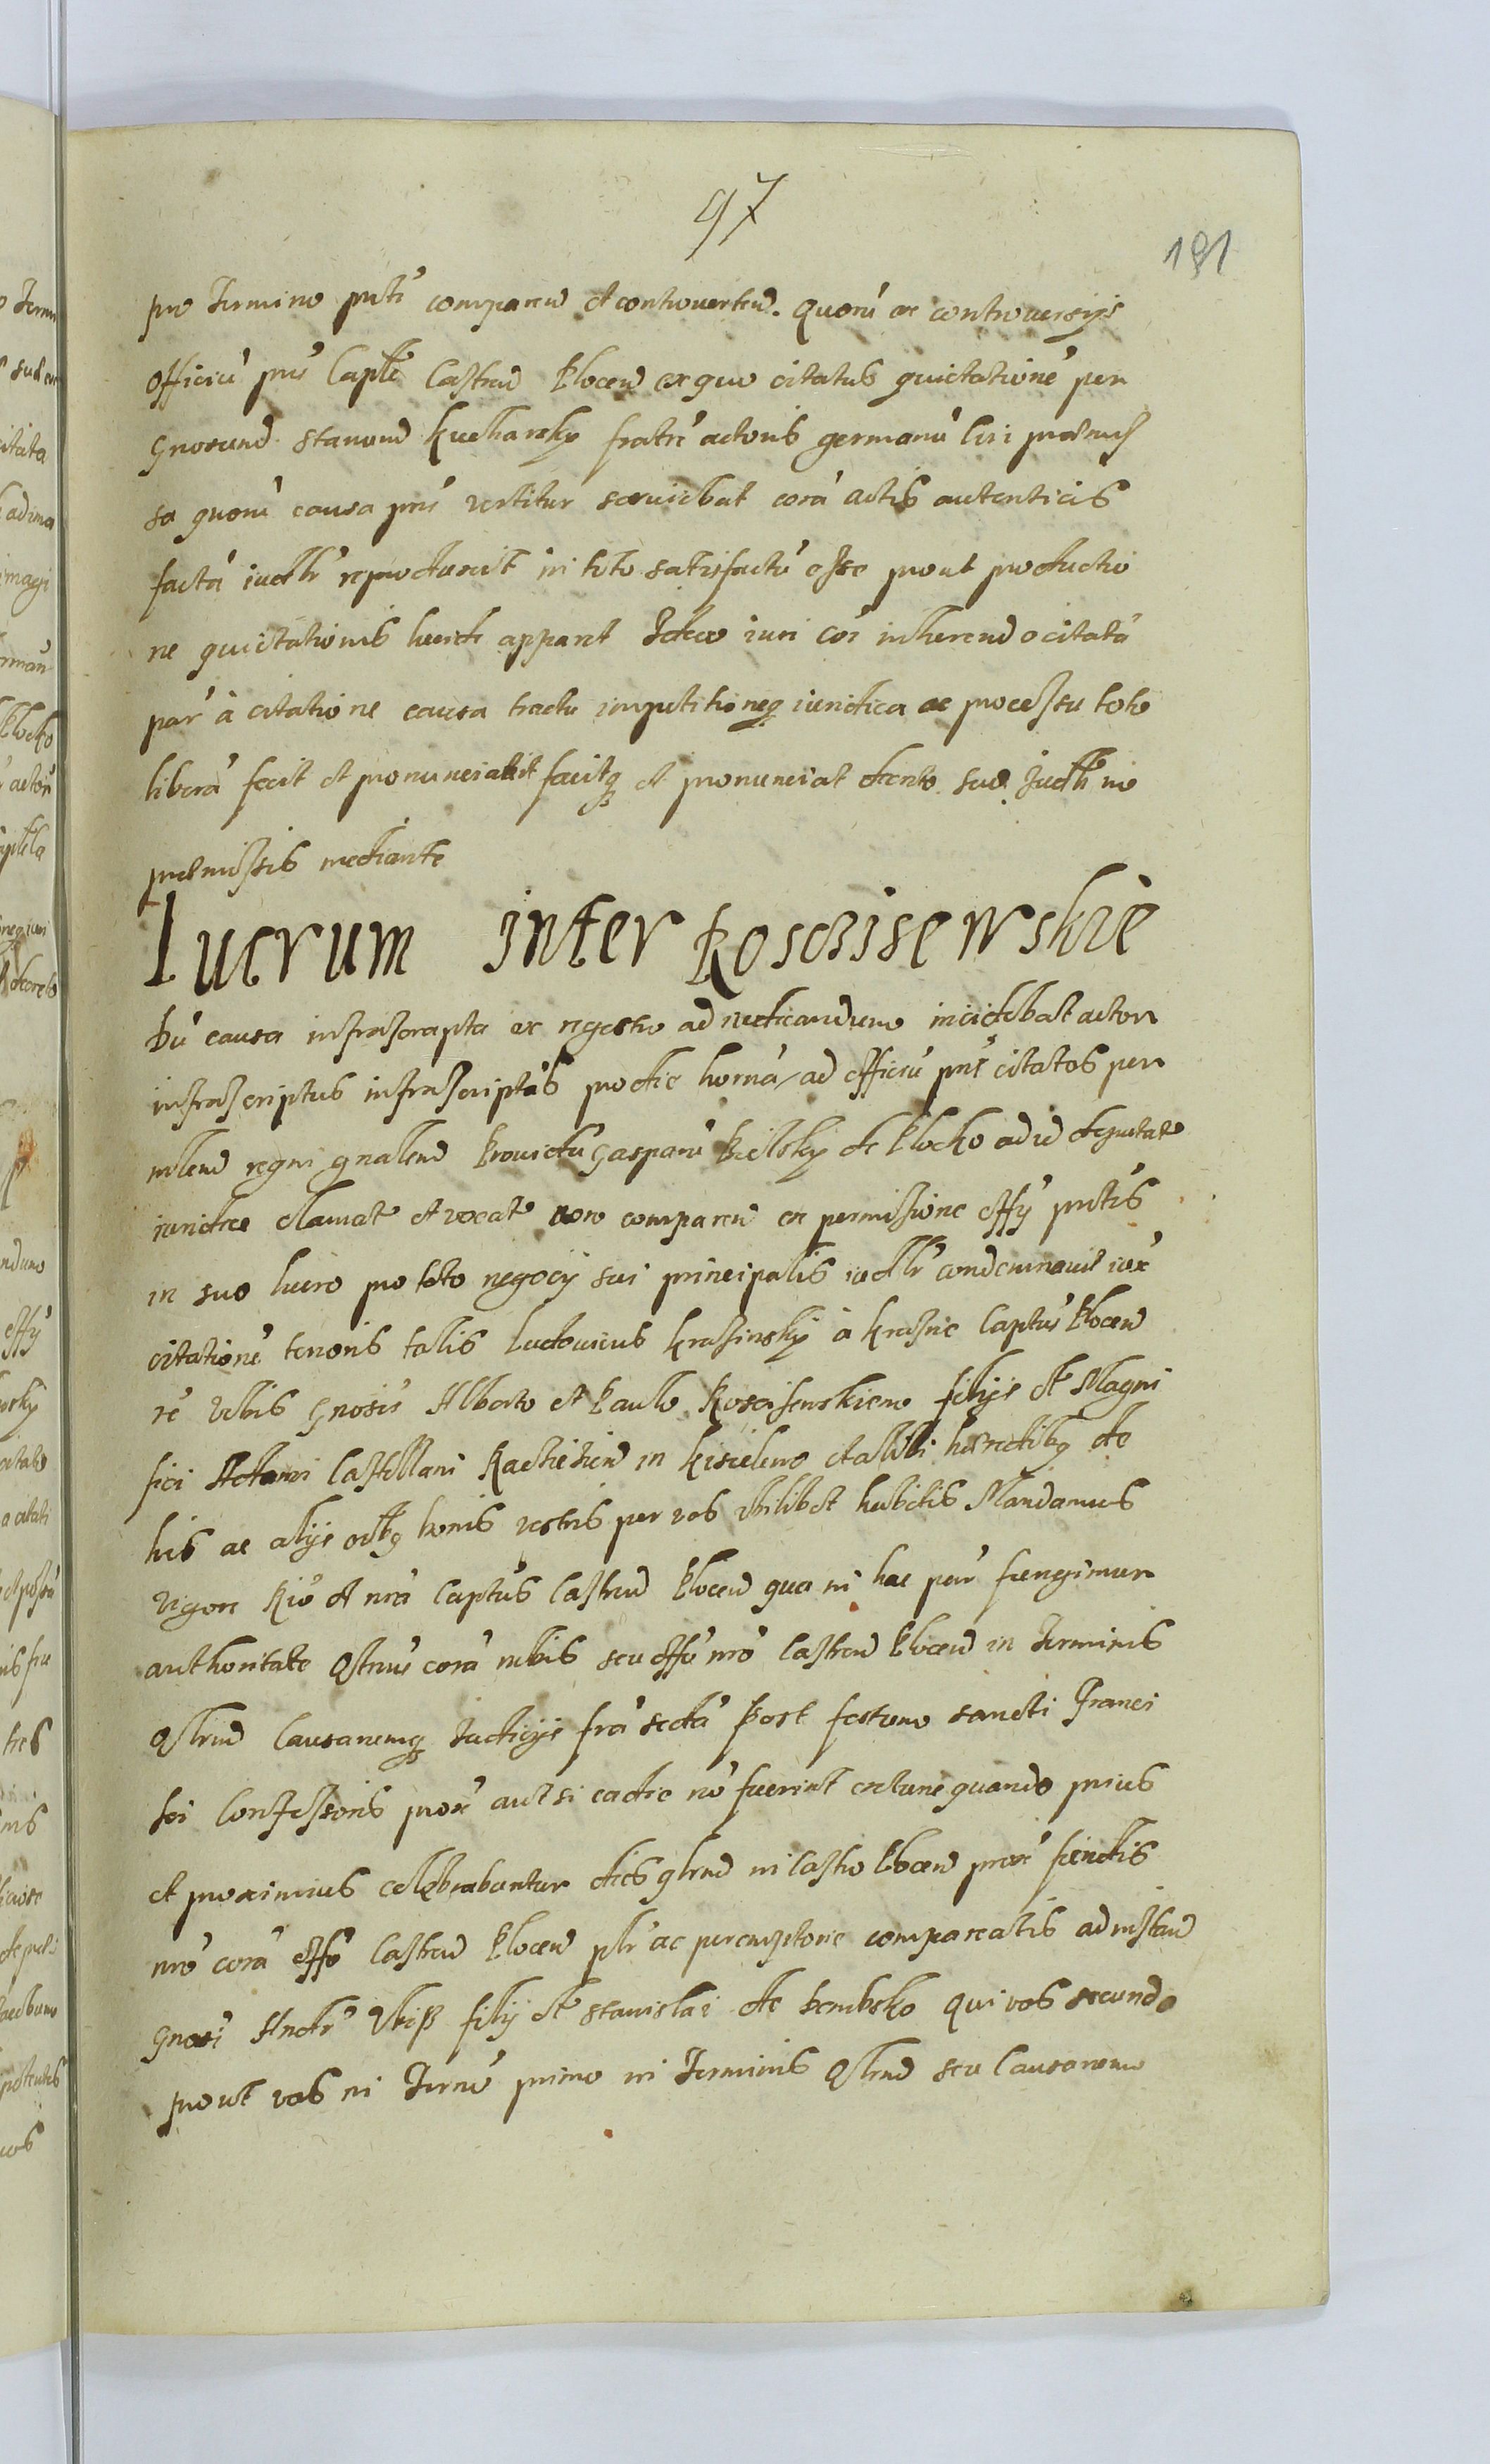 97
191
pro Termino pnti comparen et controverten. Quorū ex controversijs
Officiū pns Captle Castren Plocen ex quo citatus quietationē per
Gnosum Stanum Kucharsky fratrē actoris germanū
sa quorū causa pns vertitur serviebat corā actis autenticis
factā iudlr reproduxit in toto satisfactū esse prout productio
ne quietationis luride apparet Ideo iuri cōi inherendo citatā
par à citatione causa tractu impetitioneq iuridica ac processu toto
liberā fecit et pronunciavit facitq et pronunciat decreto suo Judlī in
premissis mediante
Lucrum inter Rosczisewskie
Dū causa infrascrapta ex regestro ad iudicandum incidebat actor
infrascriptus infrascriptos pro die hornā ad officiū pns citatos per
mlem regni gnalem Providū Gasparū Bielsky de Plocko ad id deputato
iuridice clamatos et vocatos non comparen ex permissione offy pntis
in suo lucro pro toto negocij sui principalis iudlr condemnavit iux
citationē tenoris talis Ludovicus Krasinsky à Krasne Captūs Plocen
Vobis Gnosis Alberto et Paulo Rosciszewskiemo filijs Magni
fici Adami Castellani Raciezien in Kisielewo et alibi hæredibq de
his ac alijs oibq bonis vestris per vos ubilibet habitis Mandamus
vigore Rio et nrā Captūs Castren Plocen qua in hac par fungimur
authoritate Qtnus corā nobis seu offō nrō Castren Plocen in Terminis
Qtlrum Causarumq Judicijs frā sexta Post festum sancti Franci
sci Confessoris prox aut si eadie nō fuerint extunc quando prius
et proximius celebrabuntur dies qlrum in Castro Plocen prox fiendis
nrō corā offō Castren Plocen plr ac peremptorie compareatis ad instan
Gnosi Andr filij Stanislai de Dembsko Qui vos secundo
prout vos in Termō primo in Terminis Qtlrum seu Causarum